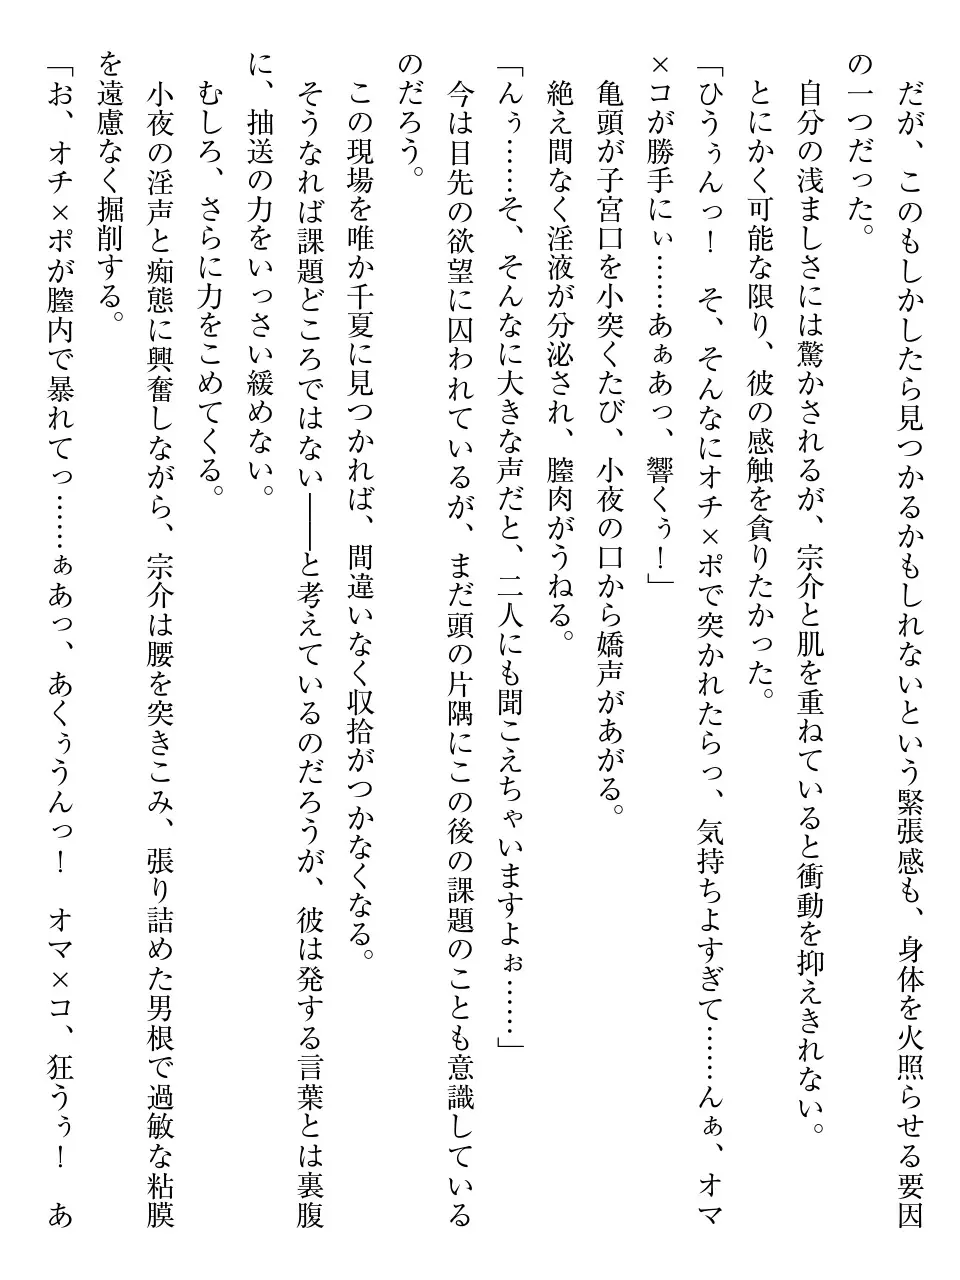 だが、このもしかしたら見つかるかもしれないという緊張感も、身体を火照らせる要因
の一つだった。
　自分の浅ましさには驚かされるが、宗介と肌を重ねていると衝動を抑えきれない。
　とにかく可能な限り、彼の感触を貪りたかった。
「ひうぅんっ！　そ、そんなにオチ×ポで突かれたらっ、気持ちよすぎて……んぁ、オマ
×コが勝手にぃ……あぁあっ、響くぅ！」
　亀頭が子宮口を小突くたび、小夜の口から嬌声があがる。
　絶え間なく淫液が分泌され、膣肉がうねる。
「んぅ……そ、そんなに大きな声だと、二人にも聞こえちゃいますよぉ……」
　今は目先の欲望に囚われているが、まだ頭の片隅にこの後の課題のことも意識している
のだろう。
　この現場を唯か千夏に見つかれば、間違いなく収拾がつかなくなる。
　そうなれば課題どころではない――と考えているのだろうが、彼は発する言葉とは裏腹
に、抽送の力をいっさい緩めない。
　むしろ、さらに力をこめてくる。
　小夜の淫声と痴態に興奮しながら、宗介は腰を突きこみ、張り詰めた男根で過敏な粘膜
を遠慮なく掘削する。
「お、オチ×ポが膣内で暴れてっ……ぁあっ、あくぅうんっ！　オマ×コ、狂うぅ！　あ